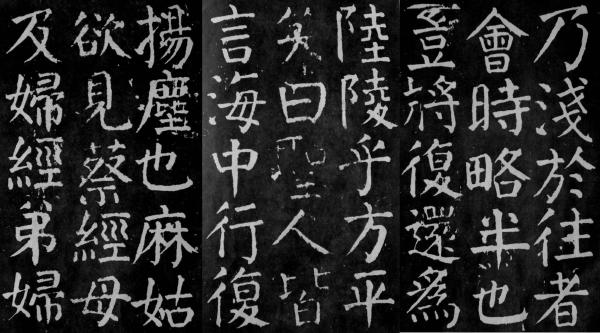 乃淺於往者
會時略半也
豈將復還爲
陸陵乎方平
笑曰聖人皆
言海中行復
揚塵也麻姑
欲見蔡經母
及婦經弟婦